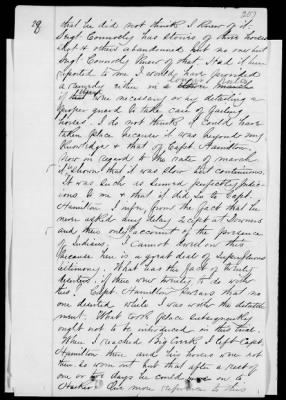 28
207
that he did not think I knew of it
Sergt. Connolly has stories of three horses
that & others abandoned but no one but
Sergt Connolly knew of that. Had it been
reported to me I would have provided
a remedy either on a march
if that were necessary or by detailing a
proper guard to take care of
horses. I do not think it could have
taken place because it was beyond my
knowledge & that of Capt Hamilton.
Now in regard to the rate of march
it shown that it was slow but continuous.
It was such as seemed perfectly judic-
ious to me & that it did so to Capt.
Hamilton I infer from the fact that he
never asked any delay except at Downers
and then only account of the presence
of Indians. I cannot dwell on this
because here is a great deal of superfluous
testimony. What has the fact of twenty
deserters, if there were twenty to do with
this. Capt. Hamilton swears that no
one deserted while I was with the detach-
ment. What took place subsequently
ought not to be introduced in this trial.
When I reached Big Creek I left Capt.
Hamilton there and his horses were not
then so worn out but that after rest of
one or two days he could on to
Harker. One more reference to this